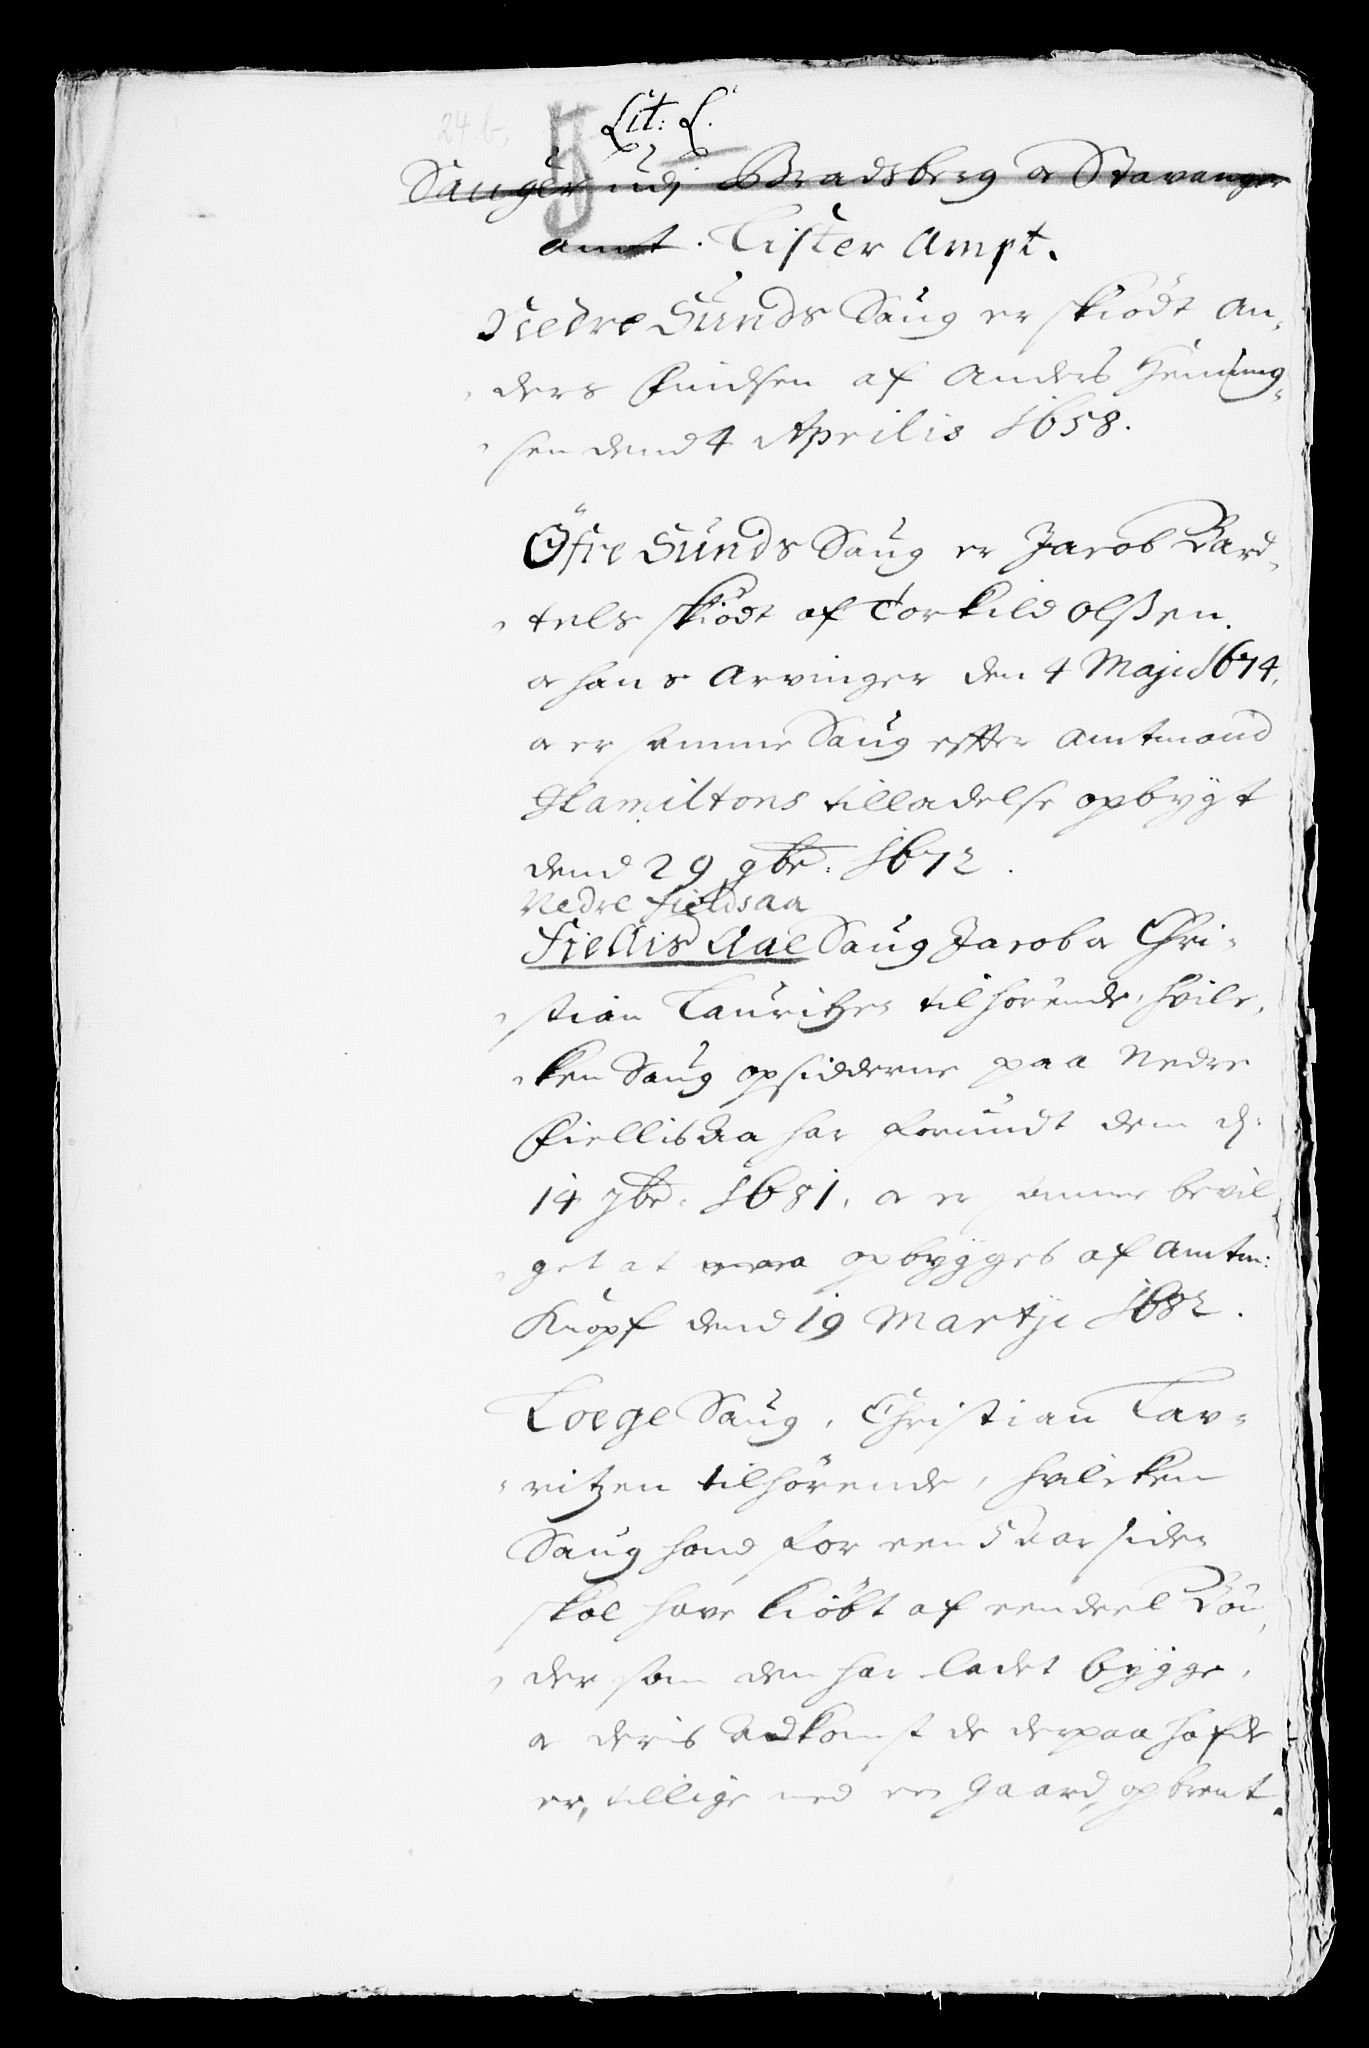 24 b.
5
Lit: L.
Sauger udj Bradsberg o Stavanger
amt. Lister Ampt.
Nedre Sunds Saug er skiödt An,
ders Knudsen af Anders Heming,
sen dend 4 Aprilis 1658.
Öfre Sunds Saug er Jacob Bard,
tels skiödt af Torkild Olßen.
o hans Arvinger den 4 Maji 1674,
o er samme Saug effter Amtmand
Hamiltons tilladelse opbygt
dend 29 9br: 1672.
Nedre Fieldsaa
Fiellis Aae Saug Jacob o Chri-
stian Lauritzen tilhörende, hvile,
ken Saug opsidderne paa Nedre
Fiellis Aa har forundt dem d:
14 7br: 1681. o er samme bevil
get at maa opbygges af Amtm:
Knopf dend 19 Martji 1682.
Loege Saug, Christian Lav-
ritzen tilhörende, hvilcken
Saug hand for een 5 aar siden
skal have kiöbt af eendeel Bön,
der som den har ladet bygge,
o deris Adkomst de derpaa hafde
er, tillige med een Gaard, opbrent.